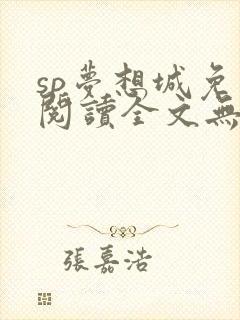 sp夢想城免
閱讀全文無
張嘉浩